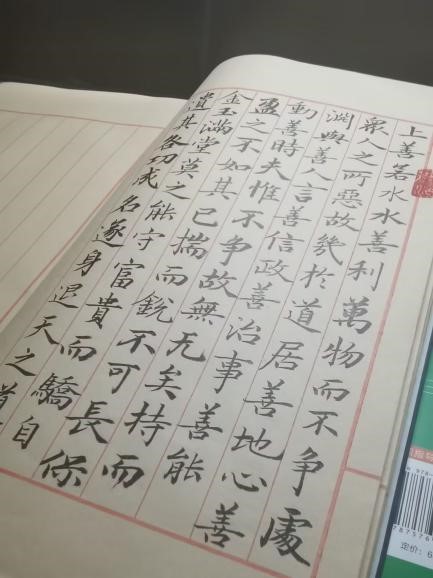 上善若水水善利萬物而不爭處
衆人之所惡故幾於道居善地心善
淵與善人言善信政善治事善能
動善時夫惟不爭故無尤矣持而
盈之不如其已揣而銳不可長保
金玉滿堂莫之能守富貴而驕自
遺其咎功成名遂身退天之道
定价：6